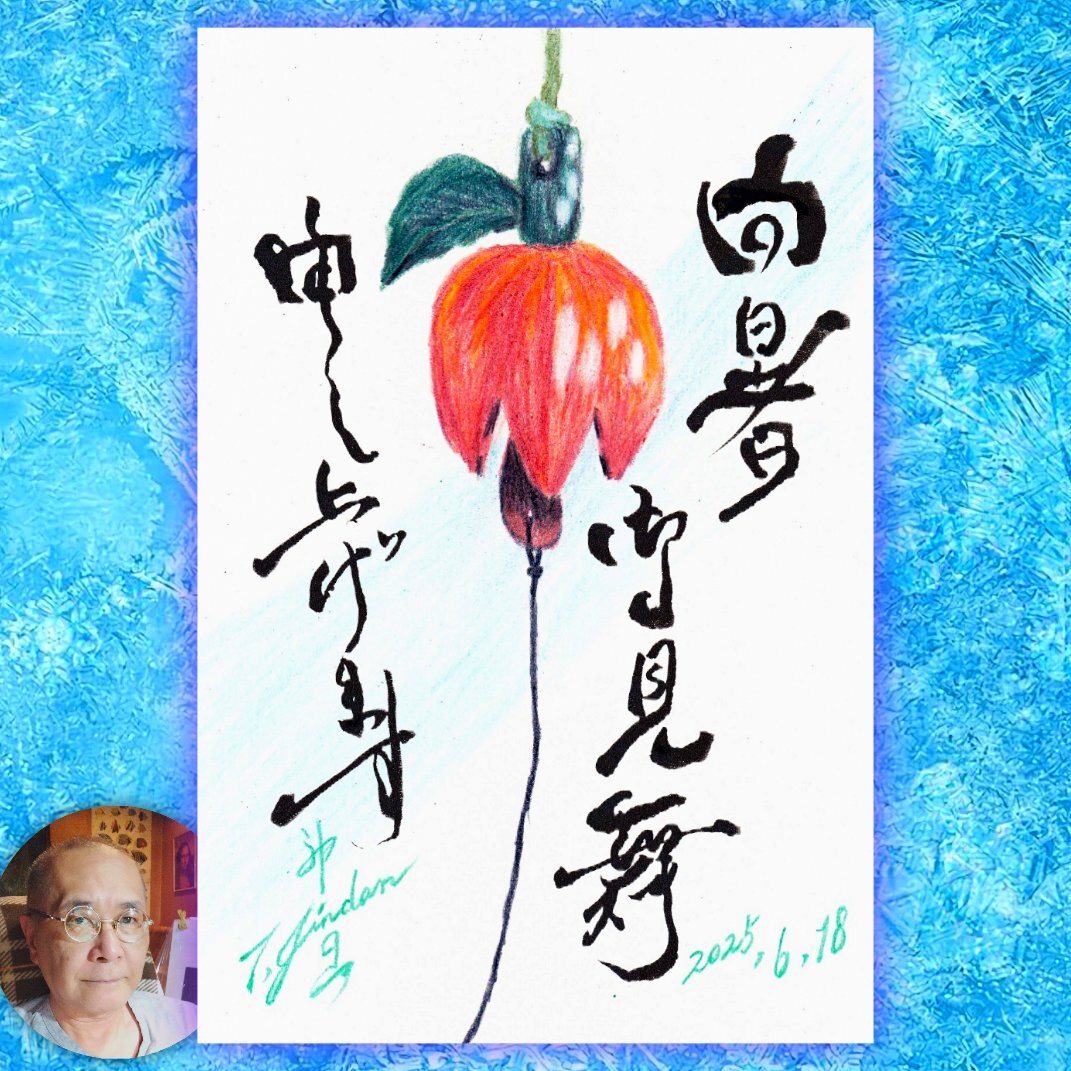 向暑
御見舞
申し上げます
T. Jindan
2025.6.18